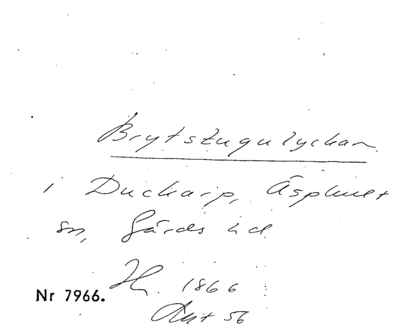 Brytstugulyckan
i Duckarp, Äsphult
sn, Gärds hd.
H. 1866
Nr 7966.
Akt 56